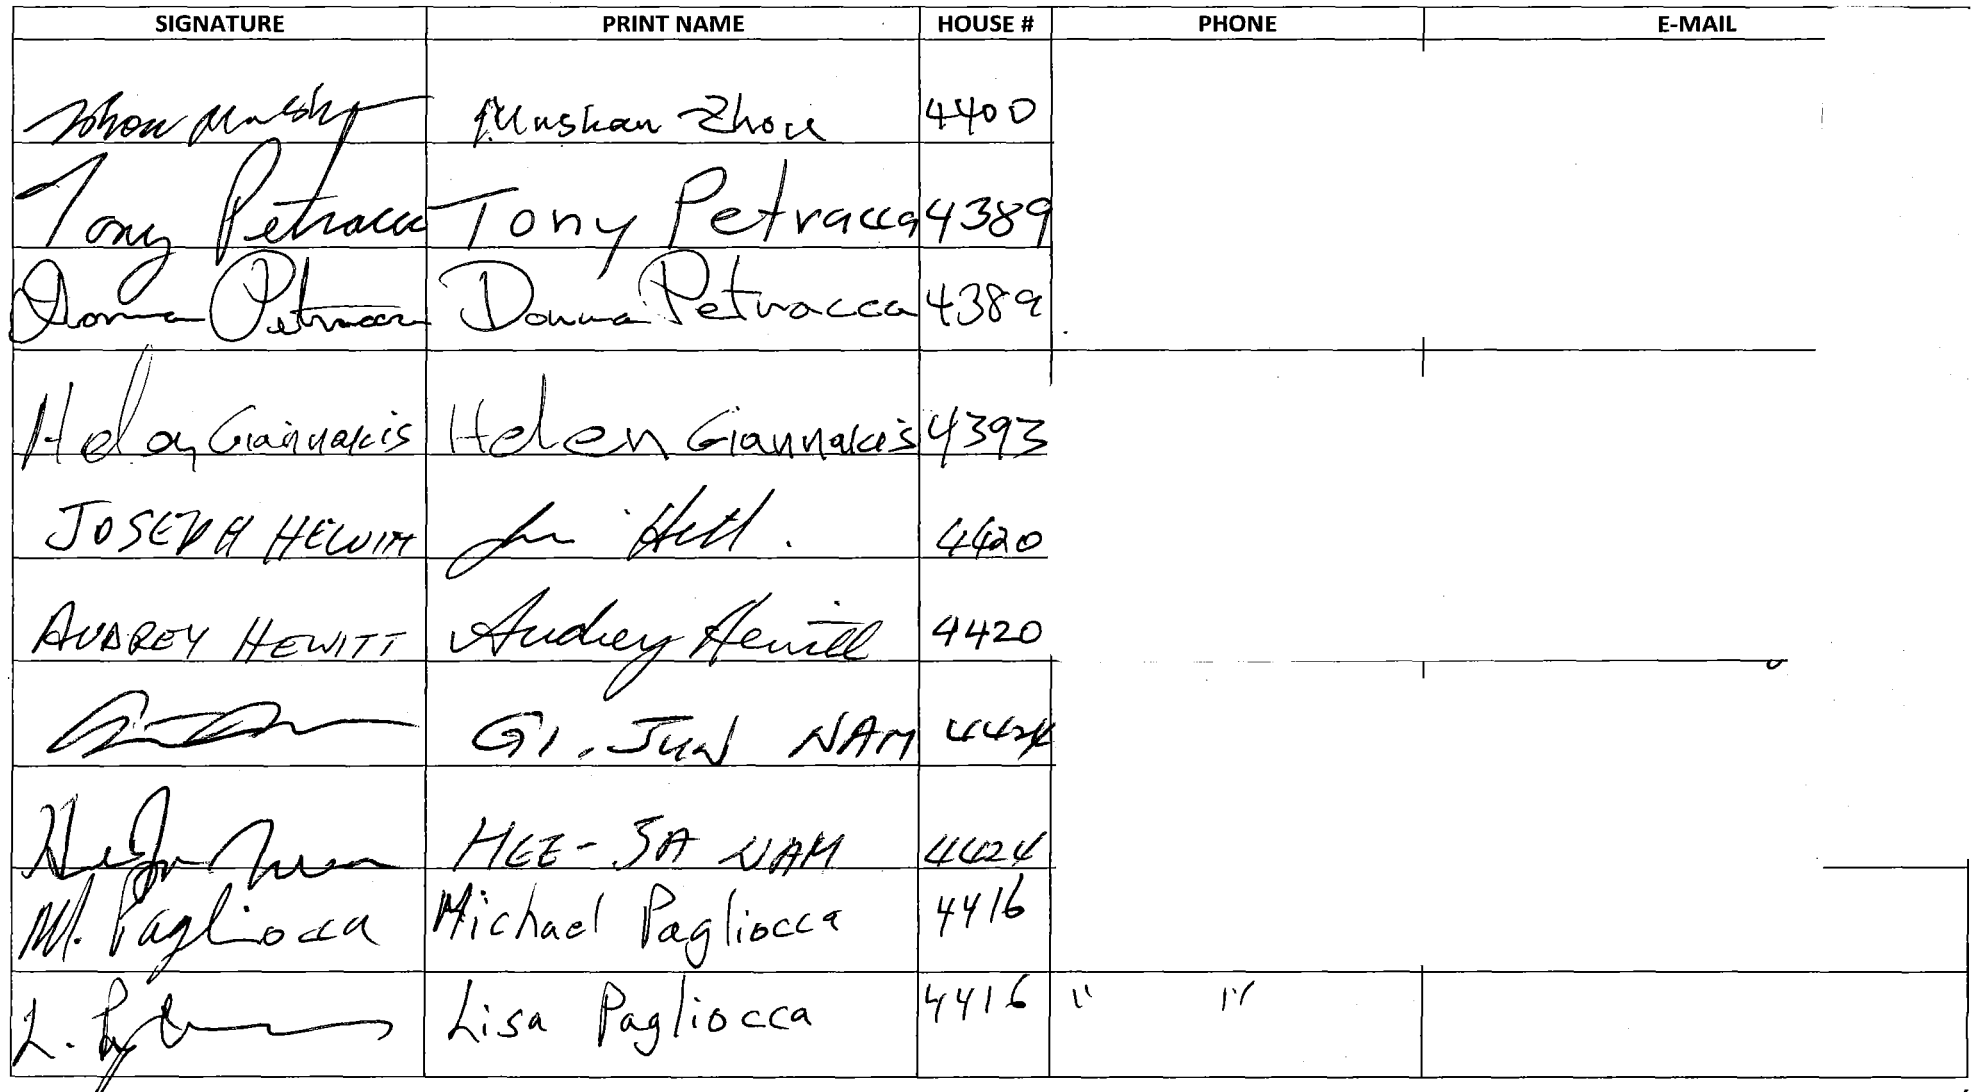 SIGNATURE PRINT NAME HOUSE # PHONE E-MAIL
Zhou Muskan Zhou 4400
Tony Petracca Tony Petracca 4389
Donna Petracca Donna Petracca 4389
Helen Giannakis Helen Giannakis 4393
JOSEPH HEWITT 4420
AUDREY HEWITT Audrey Hewitt 4420
GI-JUN NAM 4424
HEE-JA NAM 4424
M. Pagliocca Michael Pagliocca 4416
L. Lisa Pagliocca 4416 " "